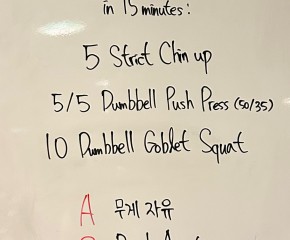 in 15 minutes:
5 Strict Chin up
5/5 Dumbbell Push Press (50/35)
10 Dumbbell Goblet Squat
A 무게 자유